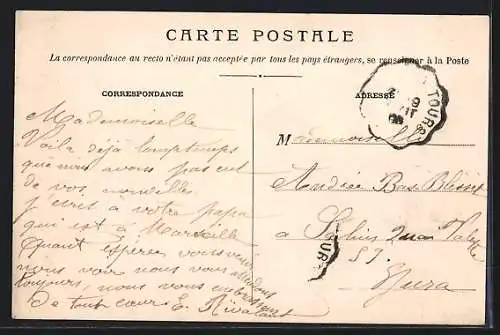 CARTE POSTALE
La correspondance au recto n'étant pas acceptée par tous les pays étrangers, se renseigner à la Poste
CORRESPONDANCE
Mademoiselle
Voilà déjà longtemps
que nous avons pas eut
de vos nouvelles
j'écris à votre papa
qui est à Marseille
Quant espérez vous venir
nous voir nous vous attendons
toujours, nous vous embrassons
De tout cœur E.
ADRESSE
Mademoiselle
Andrée
a Salins
Jura
TOURS
TOURS